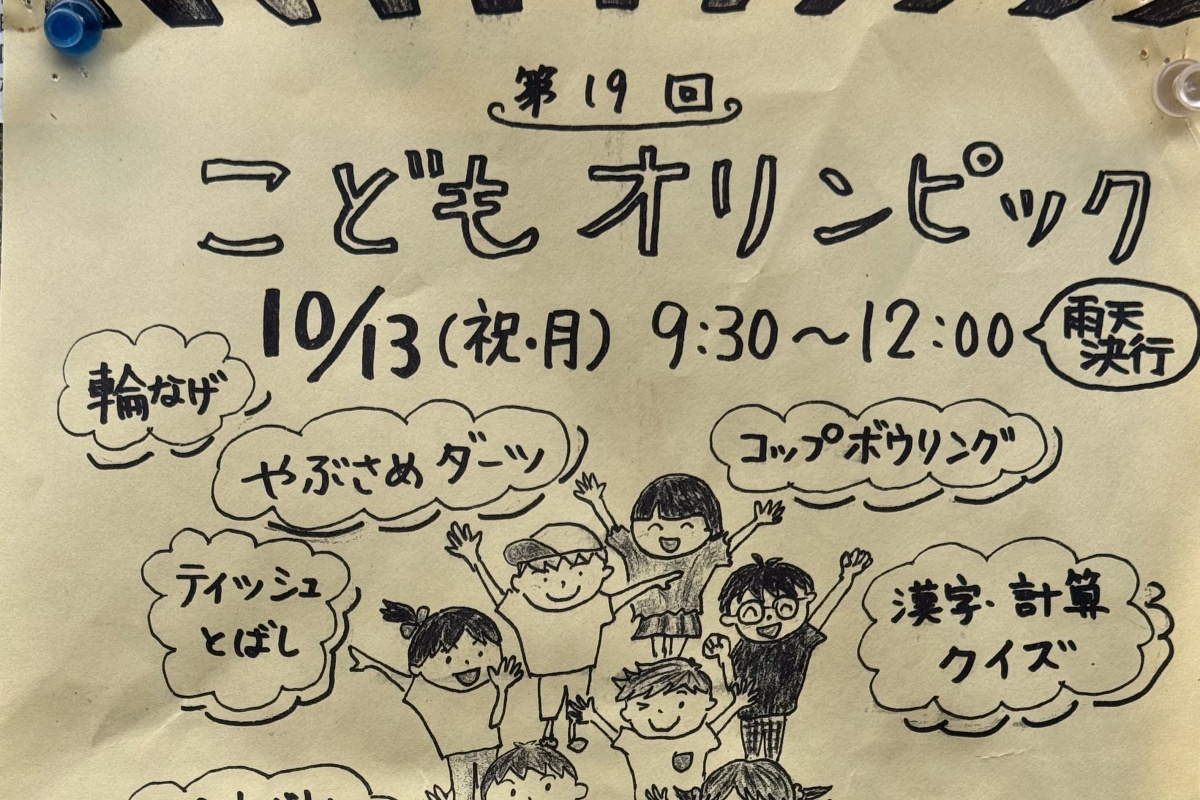 第19回
こどもオリンピック
10/13(祝・月) 9:30～12:00
雨天
決行
輪なげ
やぶさめダーツ
コップボウリング
ティッシュ
とばし
漢字・計算
クイズ